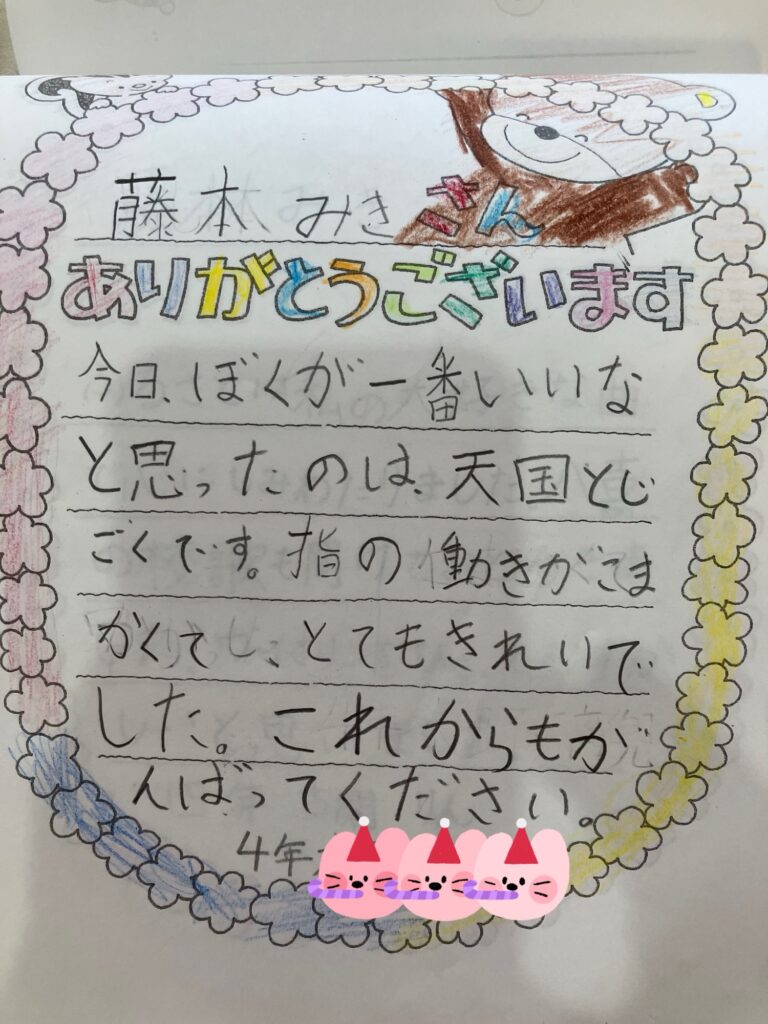 藤本みきさん
ありがとうございます
今日、ぼくが一番いいな
と思ったのは、天国とじ
ごくです。指の働きがこま
かくて、とてもきれいで
した。これからもが
んばってください。
4年